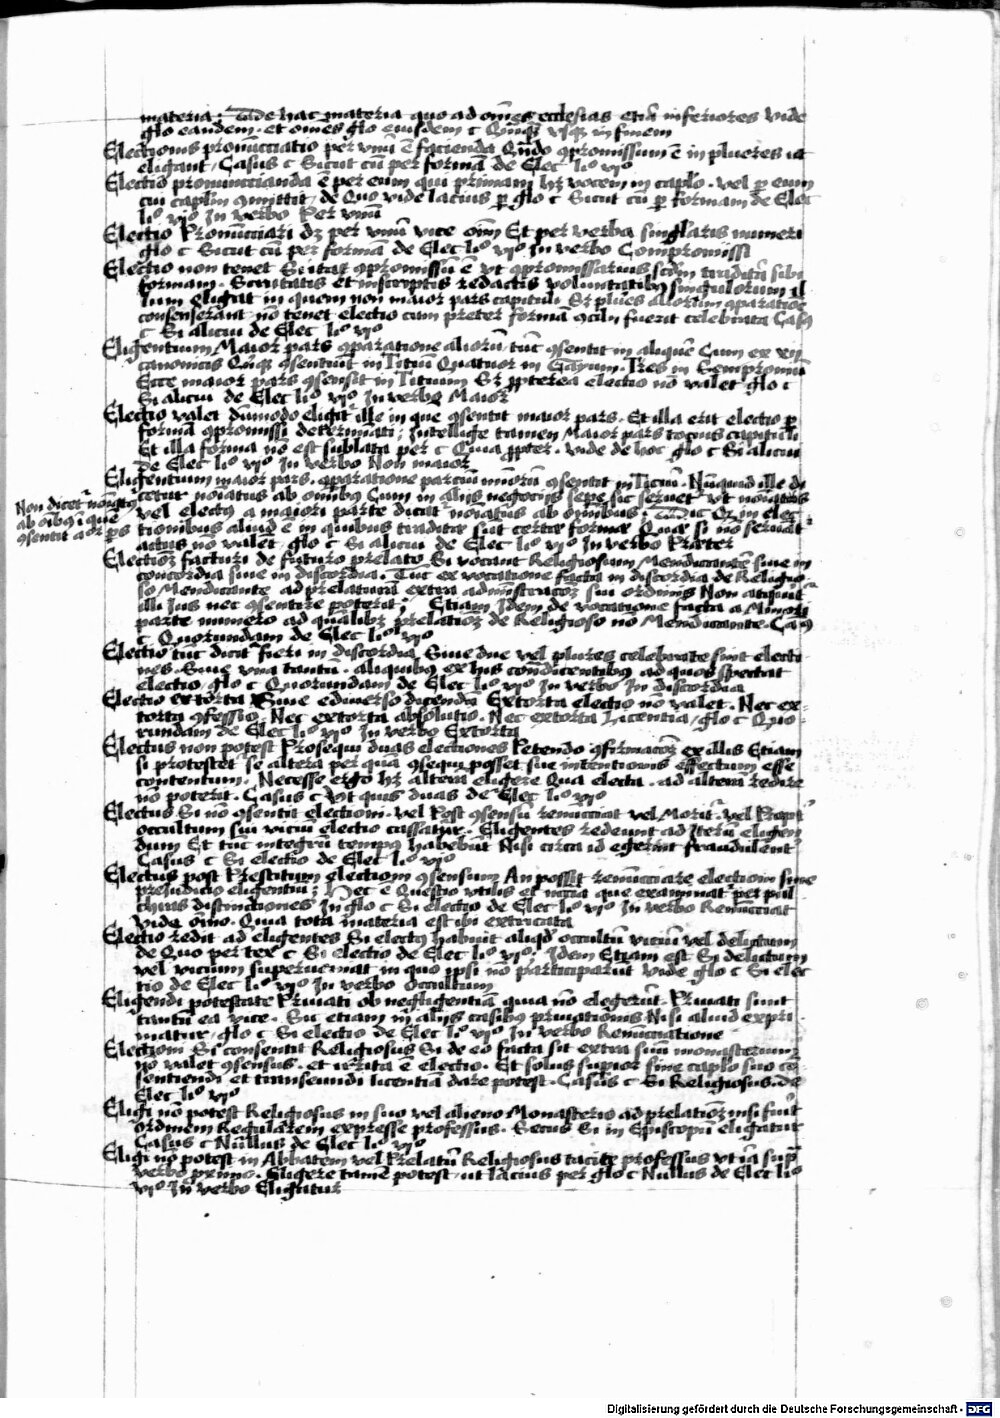 materia: Vide hac materia quo ad om̄es ecclesias etiā inferiores vide
glo eandem. et om̄es glo eiusdem c Quisq̄ vsq̄ in finem
Electionis pronunciatio per vnū ē facienda Qn̄do ꝯpromissum ē in plures ut
eligant, Casus c Sicut cū per formā de Elec li.º vi.º
Electio pronuncianda ē per eum qui primam hꝫ vocem in caplo. vel p̱ eum
cui caplm ꝯmittit, de Quo vide lacius p̱ glo c Sicut cū p̱ formam de Elec
li.º vi.º In verbo Per vnū
Electio Pronunciari dꝫ per vnū vice oīm Et per verba singlaris numeri
glo c Sicut cū per formā de Elec li.º vi.º In verbo Compromissi
Electio non tenet Si itaꝫ ꝯpromissū ē vt ꝯpromissarius scdm traditā sibi
formam. Scrutatis et inscriptis redactis voluntatibꝰ singulorum il
lum eligat in quem non maior pars capituli Sꝫ plures aliorum ꝯparatiōe
consenserānt. nō tenet electio cum preter formā ꝯcilii fuerit celebrata Casꝰ
c Si alicui de Elec li.º vi.º
Eligentium Maior pars ꝯparatione aliorū, tūc ꝯsentit in aliquē Cum ex xii
canonicis Quīqꝫ ꝯsentiunt in Titiū Quatuor in Gayum. Tres in Sempronium
Ecce maior pars ꝯsensit in Titium Sꝫ ꝓpterea electio nō valet glo c
Si alicui de Elec li.º vi.º In verbo Maior
Electio valet dūmodo eligit̄ ille in que ꝯsentit maior pars. Et illa erit electio p̱
formā ꝯpromissi determinati: Intellige tamen Maior pars tocius capituli
Et illa forma nō est sublata per c Quia ꝓpter. vide de hoc glo c Si alicui
de Elec li.º vi.º In verbo Non maior
Eligentium maior pars. ꝯparatione parciū minorū ꝯsentit in Ticiū. Nūquid ille di
cetur noiatus ab omībus Cum in alijs negociis sepe sic seruet̄ vt noiatus
vel electꝰ a maiori parte dicat̄ noiatus ab omībus: Dic Qꝫ in elec
tionibus aliud ē in quibus traditae sūt certae formae Quae si nō seruāt̄
actus nō valet. glo c Si alicui de Elec li.º vi.º In verbo Praeter
Non dicet̄ noīatꝰ
ab oībꝰ ī que
ꝯsentit aor ps
Electoꝫ facturi de futuro prelato Si vocant Religiosum Mendicantē siue in
concordia siue in discordia. Tūc ex vocatione facta in discordia de Religio
so Mendicante ad prelaturā extra administratoꝫ sui ordinis Non atq̄uit̄
illi Ius nec ꝯsentire poterit: Etiam Idem de vocatione facta a Minori
parte numero ad qualibꝫ prelatioꝫ de Religioso nō Mendicante. Casꝰ
c Quorundam de Elec li.º vi.º
Electio tūc dicit̄ fieri in discordia, Siue due vel plures celebrate sint electi
nes. Siue vna tantū. aliquibꝰ ex his cont̄dicentibus ad quos spectat
electio, glo c Quorundam de Elec li.º vi.º In verbo In discordia
Electio extorta Siue ediuerso dicendū Extorta electio nō valet. Nec ex-
torta ꝯfessio. Nec extorta absolutio. Nec extorta Licentia, glo c Quo-
rundam de Elec li.º vi.º In verbo Extorta
Electus non potest Prosequi duas electiones Petendo ꝯfirmacōꝫ ex illis Etiam
si protestet̄ se altera per quā ꝯsequi posset sue intentionis effectum esse
contentum. Necesse ergo hꝫ alterā eligere Qua electa. ad alterā redire
nō poterit. Casus c Vt quis duas de Elec li.º vi.º
Electus Si nō ꝯsentit electioni. vel Post ꝯsensū renunciat vel Morit̄. vel Propt̄
occultum sui viciū electio cassatur. Eligentes redeunt ad Iterū eligen
dum Et tūc integrū tempꝰ habebūt Nisi circa id egerint fraudulent̄
Casus c Si electio de Elec li.º vi.º
Electus post Prestitum electioni ꝯsensum An possit renunciare electioni sine
preiudicio eligentiū: Hec ē Questio vtilis et nota que examinat̄ per pul
chras distinctiones In glo c Si electio de Elec li.º vi.º In verbo Renunciat
Vide ōīno. Quia tota materia est ibi extricata
Electio redit ad eligentes Si electꝰ habuit aliqd̄ occultū viciū vel delictum
de Quo per tex̄ c Si electio de Elec li.º vi.º: Idem Etiam est Si delictum
vel vicium superueniat in quo ipsi nō participarūt vide glo c Si elec
tio de Elec li.º vi.º In verbo Occultum
Eligendi potestate Priuati ob negligentiā quia nō elegerūt. Priuati sunt
tantū ea vice. Sic etiam in alijs casibꝰ priuationis Nisi aliud expri
matur, glo c Si electio de Elec li.º vi.º In verbo Renunciatione
Electioni Si consentit Religiosus Si de eo facta sit extra suū monasterium
nō valet ꝯsensus. et irrita ē electio. Et solus supior sine caplo suo cō
sentiendi et transeundi licentiā dare potest. Casus c Si Religiosus. de
Elec li.º vi.º
Eligi nō potest Religiosus in suo vel alieno Monasterio ad prelatioꝫ nisi fuit̄
ordinem Regularem expresse professus. Secus Si in Episcopū eligatur
Casus c Nullus de Elec li.º vi.º
Eligi nō potest in Abbatem vel Prelatū Religiosus tacite professus vt īa sup̄
verbo primo. Eligere tamē potest, ut lacius per glo c Nullus de Elec li.º
vi.º In verbo Eligatur
Digitalisierung gefördert durch die Deutsche Forschungsgemeinschaft - DFG